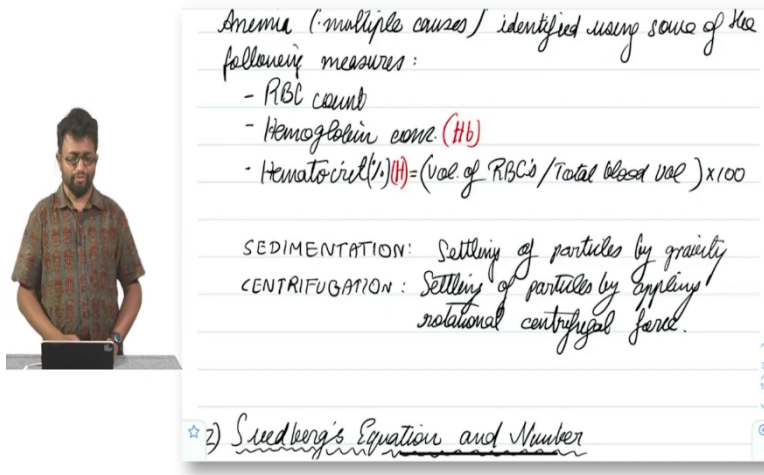 Anemia (multiple causes) identified using some of the
following measures :
- RBC count
- Hemoglobin conc. (Hb)
- Hematocrit (%) (H) = (Vol. of RBC's / Total blood vol) x 100
SEDIMENTATION: Settling of particles by gravity
CENTRIFUGATION : Settling of particles by applying
rotational centrifugal force.
2) Svedberg's Equation and Number